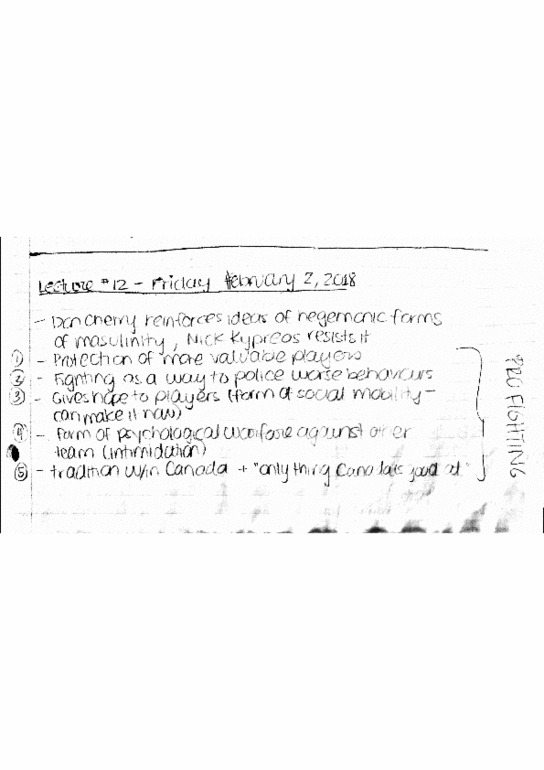 Lecture #12 - Friday February 2, 2018
- Don Cherry reinforces ideas of hegemonic forms
of masulinity, Nick Kypreos resists it
① - Protection of more valuable players
② - Fighting as a way to police worse behaviours
③ - Gives hope to players (form of social mobility -
can make it now)
④ - Form of psychological warfare against other
team (intimidation)
⑤ - tradition w/in Canada + "only thing Canada is good at"
PRO FIGHTING